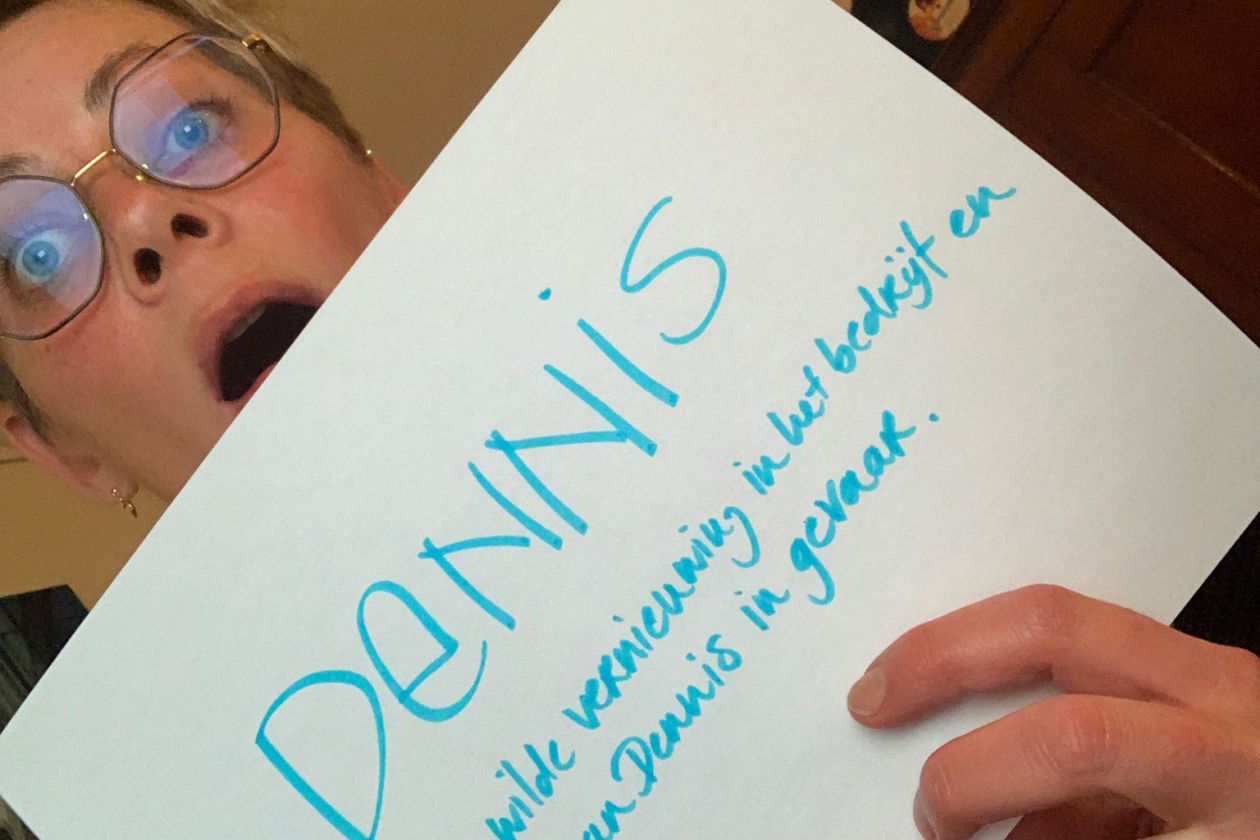 DENNiS
wilde vernieuwing in het bedrijf en
Dennis in gevaar.